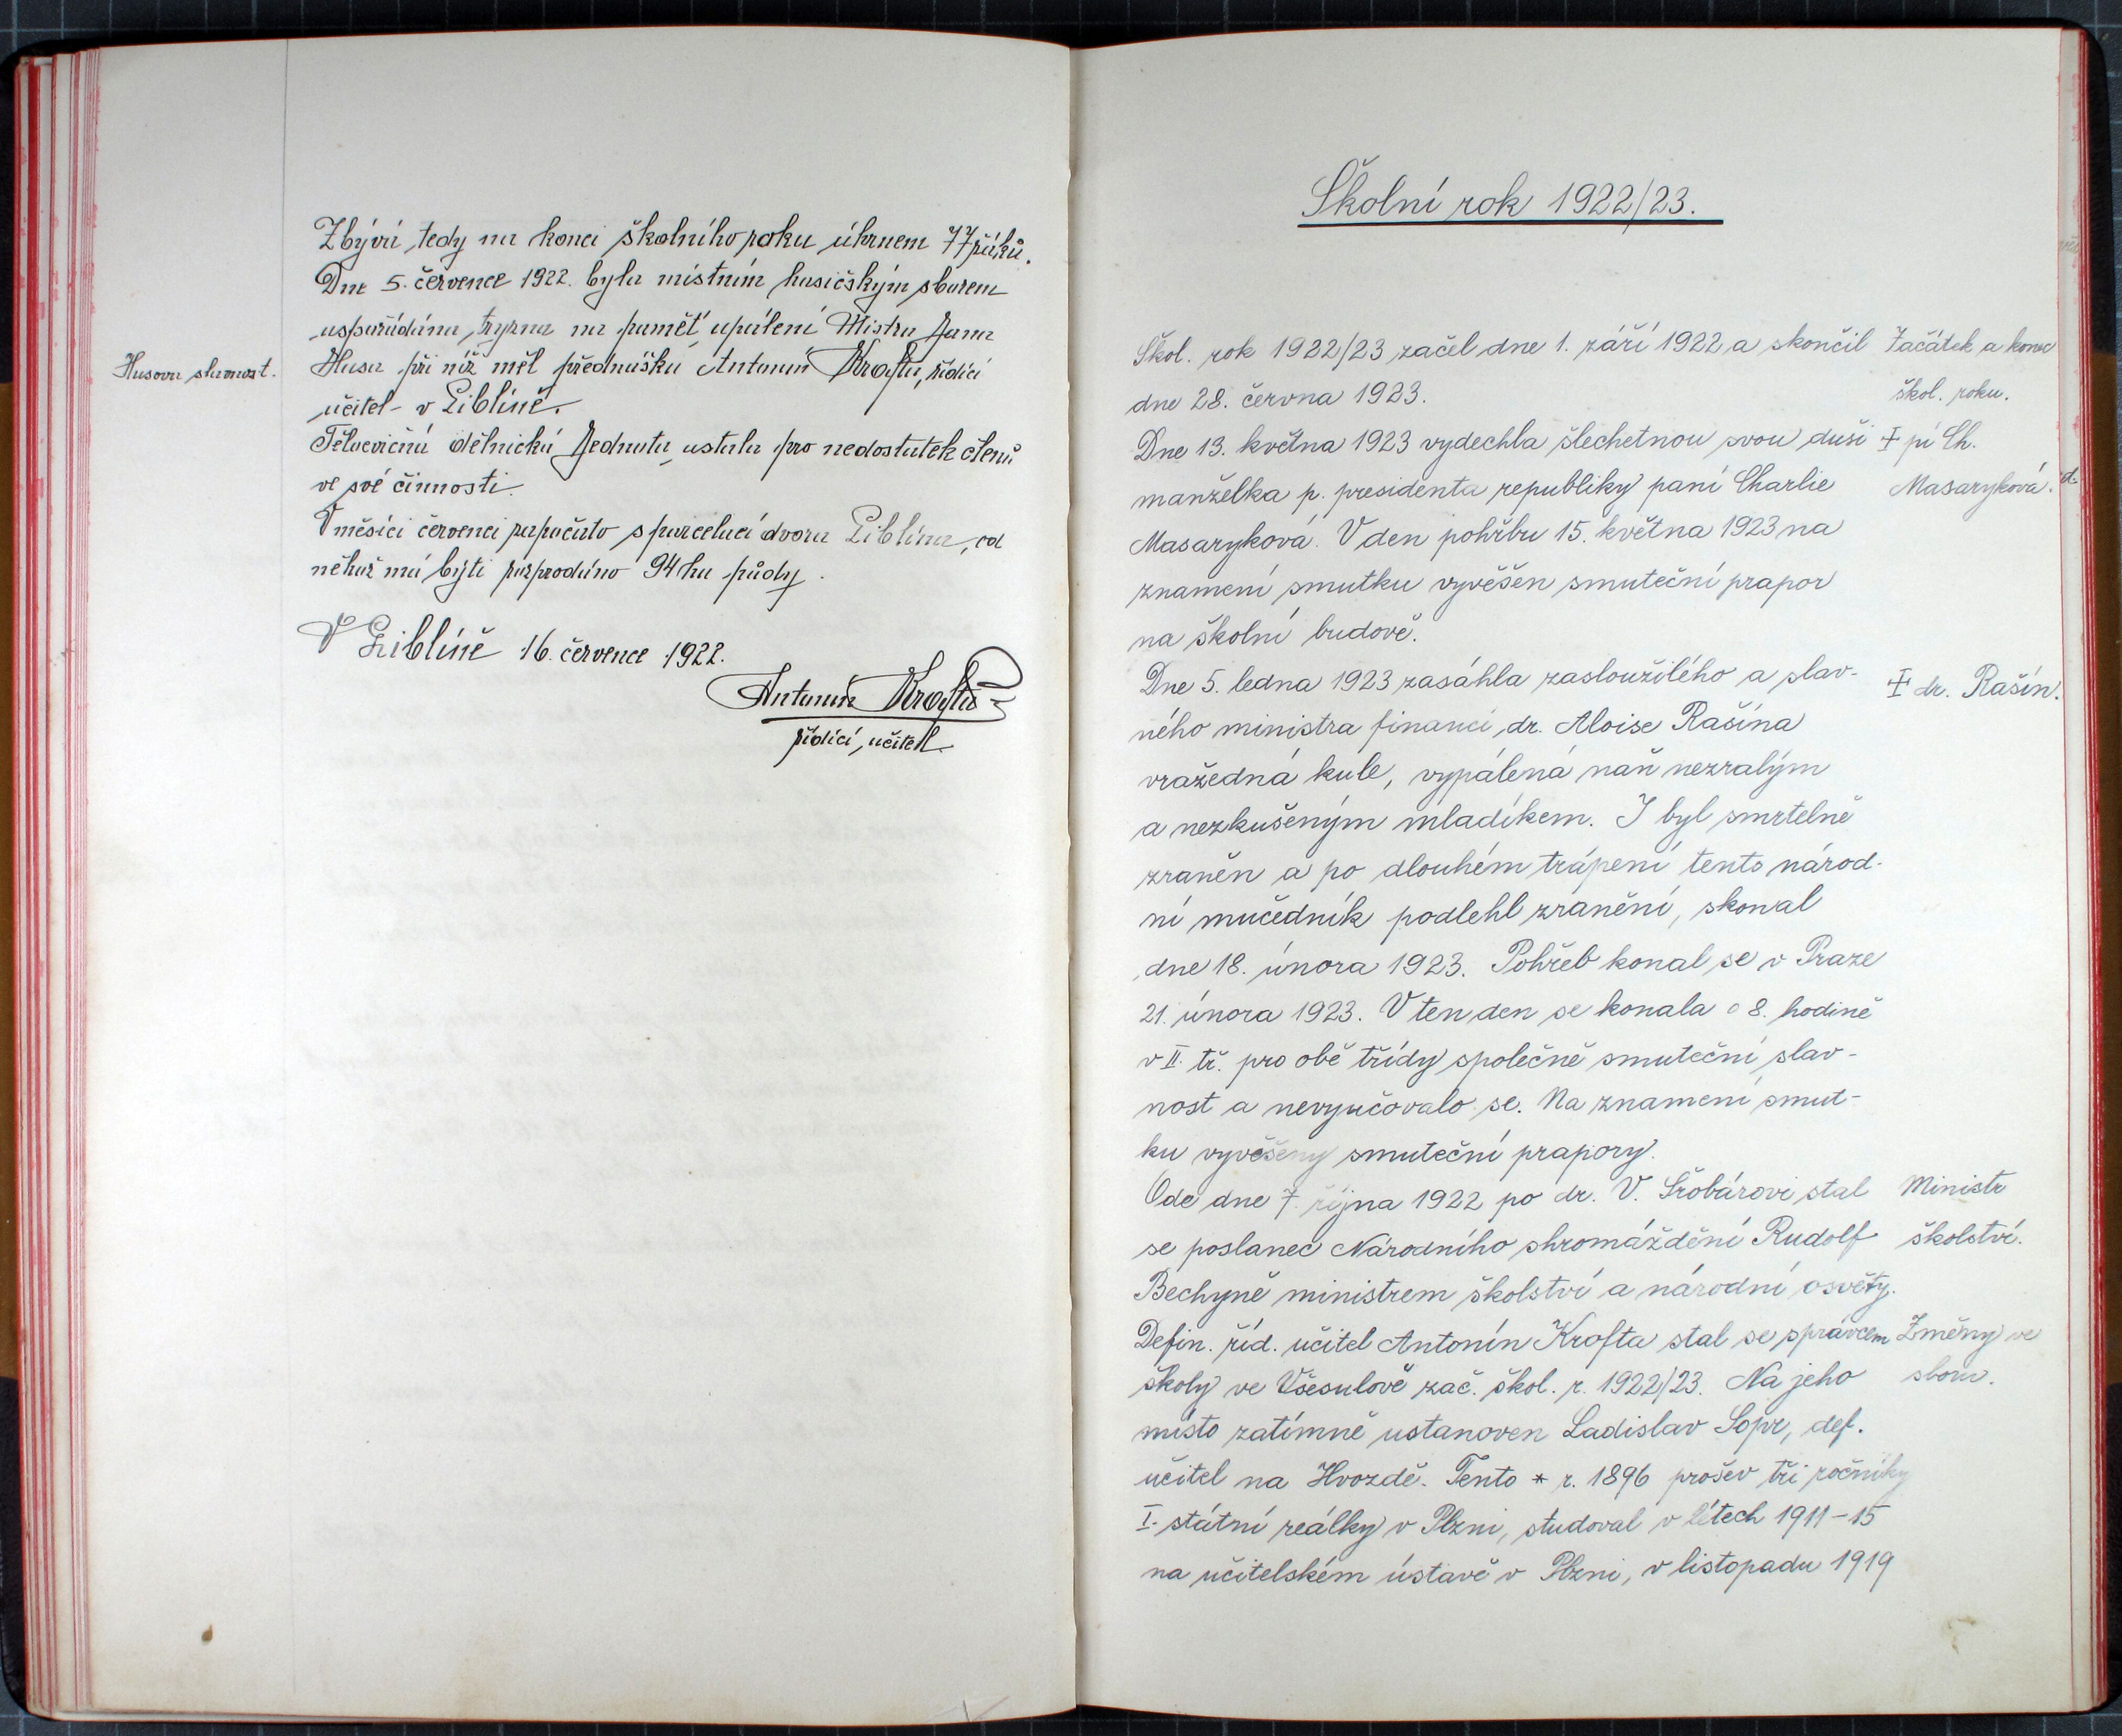 Zbývá tedy na konci školního roku úhrnem 77 žáků.
Dne 5. července 1922. byla místním hasičským sborem
uspořádána tryzna na paměť upálení Mistra Jana
Husova slavnost.
Husa při níž měl přednášku Antonín Krofta, řídící
učitel v Liblíně.
Tělocvičná dělnická Jednota ustala pro nedostatek členů
ve své činnosti.
V měsíci červenci započato s parcelací dvora Liblína, od
něhož má býti rozprodáno 94 ha půdy.
V Liblíně 16. července 1922.
Antonín Krofta
řídící učitel.
Školní rok 1922/23.
Škol. rok 1922/23 začel dne 1. září 1922 a skončil
Začátek a konec
dne 28. června 1923.
škol. roku.
Dne 13. května 1923 vydechla šlechetnou svou duši
† pí Ch.
manželka p. presidenta republiky paní Charlie
Masaryková.
Masaryková. V den pohřbu 15. května 1923 na
znamení smutku vyvěšen smuteční prapor
na školní budově.
Dne 5. ledna 1923 zasáhla zasloužilého a slav-
† dr. Rašín.
ného ministra financí, dr. Aloise Rašína
vražedná kule, vypálená naň nezralým
a nezkušeným mladíkem. I byl smrtelně
zraněn a po dlouhém trápení tento národ-
ní mučedník podlehl zranění, skonal
dne 18. února 1923. Pohřeb konal se v Praze
21. února 1923. V ten den se konala o 8. hodině
v II. tř. pro obě třídy společně smuteční slav-
nost a nevyučovalo se. Na znamení smut-
ku vyvěšeny smuteční prapory.
Ode dne 7. října 1922 po dr. V. Šrobárovi stal
Ministr
se poslanec Národního shromáždění Rudolf
školství.
Bechyně ministrem školství a národní osvěty.
Defin. říd. učitel Antonín Krofta stal se správcem
Změny ve
školy ve Všesulově zač. škol. r. 1922/23. Na jeho
sboru.
místo zatímně ustanoven Ladislav Sopr, def.
učitel na Hvozdě. Tento * r. 1896 prošev tři ročníky
I. státní reálky v Plzni, studoval v létech 1911-15
na učitelském ústavě v Plzni, v listopadu 1919